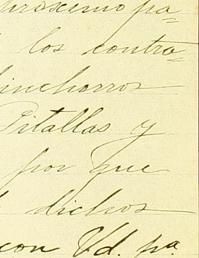 proximo pa=
los contra=
hinchorros
Pitallas y
por que
dichos
con Vd. pa.